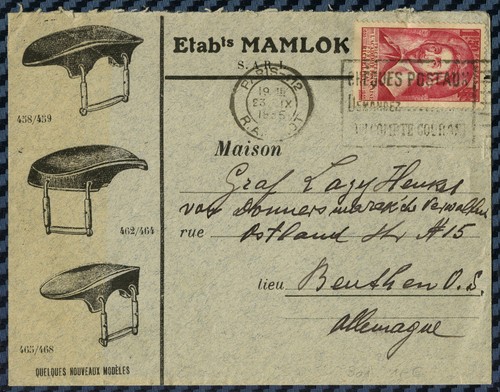 Etabls MAMLOK
S.A.R.L.
PARIS-12
19H
23 IX
1935
CHEQUES POSTAUX
DEMANDEZ
UN COMPTE COURANT
458/459
Maison
Graf Lazy Henkel
von Donnersmarck'sche Verwaltung
462/464
rue
Ostland Str # 15
lieu
Beuthen O.S.
Allemagne
465/468
QUELQUES NOUVEAUX MODÈLES